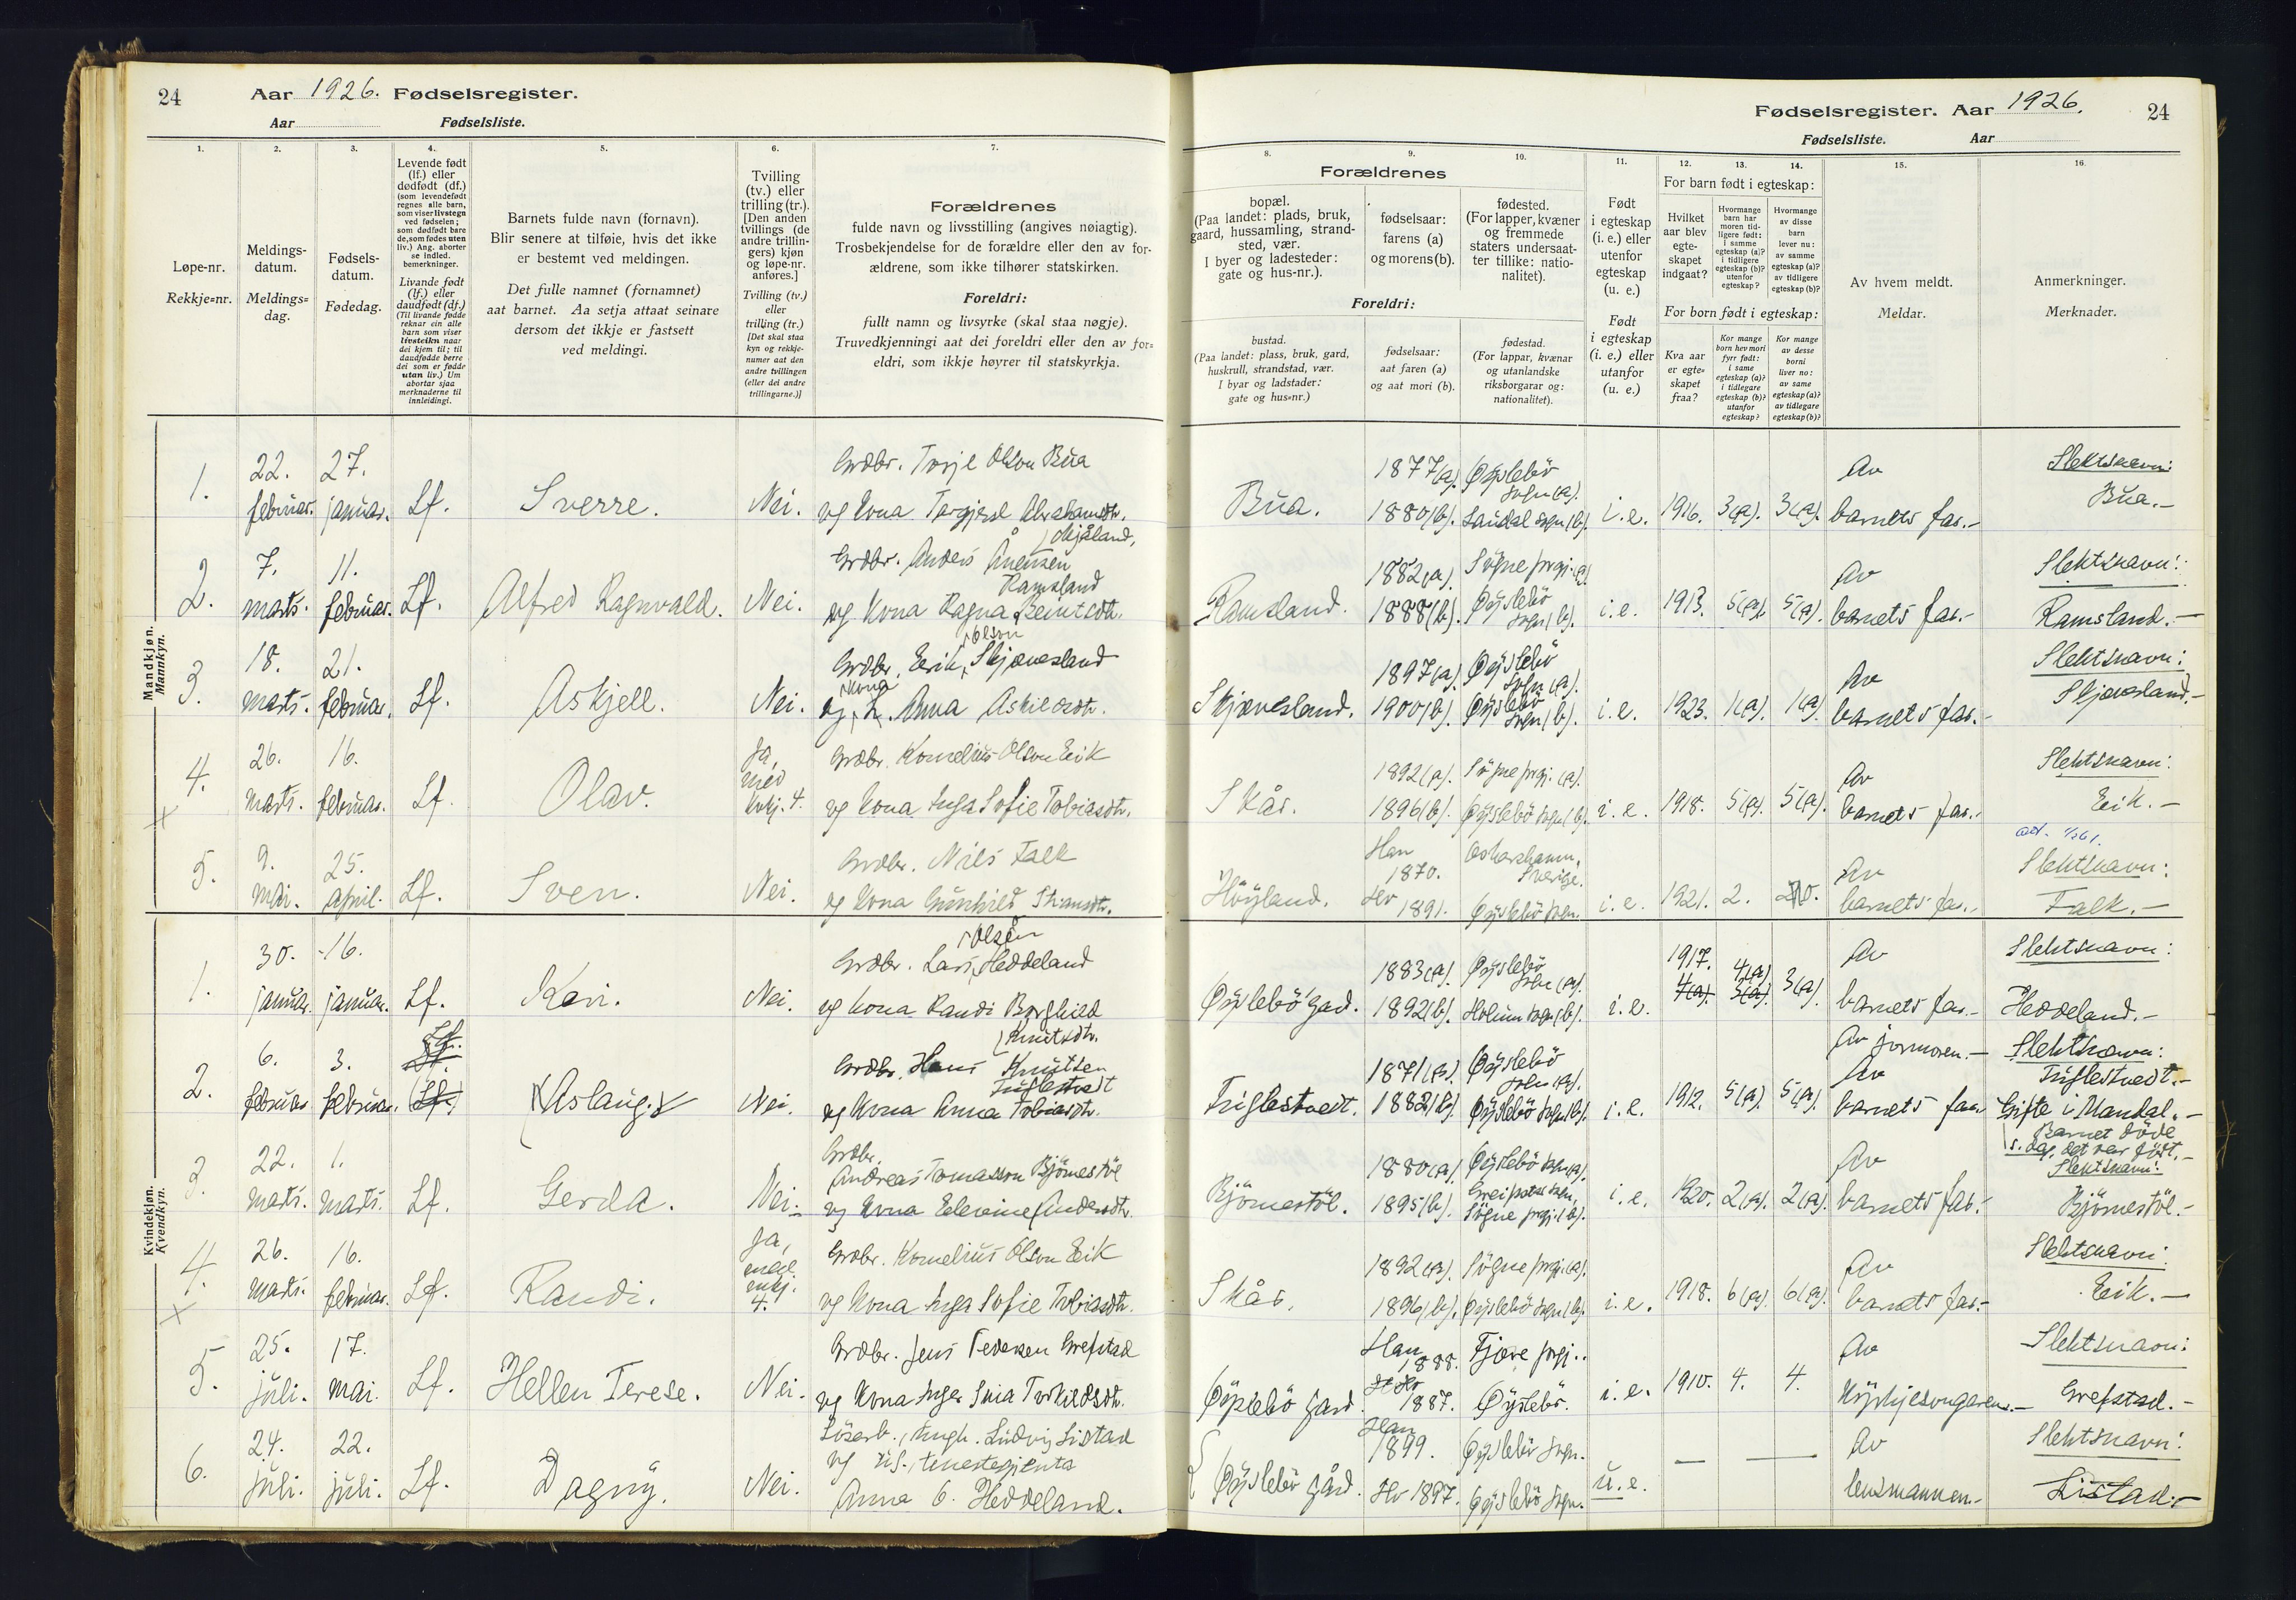 24
Aar 1926. Fødselsregister.
Aar
Fødselsliste.
1.
2.
3.
4.
5.
6.
7.
Løpe-nr.
Rekkje=nr.
Meldings-
datum.
Meldings=
dag.
Fødsels-
datum.
Fødedag.
Levende født
(lf.) eller
dødfødt (df.)
(som levendefødt
regnes alle barn,
som viser livstegn
ved fødselen;
som dødfødt bare
de, som fødes uten
liv.) Ang. aborter
se indled.
bemerkninger.
Livande født
(lf.) eller
daudfødt (df.)
(Til livande fødde
reknar ein alle
barn som viser
livsteikn naar
dei kjem til; til
daudfødde berre
dei som er fødde
utan liv.) Um
abortar sjaa
merknaderne til
innleidingi.
Barnets fulde navn (fornavn).
Blir senere at tilføie, hvis det ikke
er bestemt ved meldingen.
Det fulle namnet (fornamnet)
aat barnet. Aa setja attaat seinare
dersom det ikkje er fastsett
ved meldingi.
Tvilling
(tv.) eller
trilling (tr.).
[Den anden
tvillings (de
andre trillin-
gers) kjøn
og løpe-nr.
anføres.]
Tvilling (tv.)
eller
trilling (tr.)
[Det skal staa
kyn og rekkje-
numer aat den
andre tvillingen
(eller dei andre
trillingarne.)]
Forældrenes
fulde navn og livsstilling (angives nøiagtig).
Trosbekjendelse for de forældre eller den av for-
ældrene, som ikke tilhører statskirken.
Foreldri:
fullt namn og livsyrke (skal staa nøgje).
Truvedkjenningi aat dei foreldri eller den av for=
eldri, som ikkje høyrer til statskyrkja.
Mandkjøn.
Mannkyn.
1.
22.
februar.
27.
januar.
Lf.
Sverre.
Nei.
Grdbr. Torje Olson Bua
og kona Torgjerd Abrahamsdtr.
Skjåland,
2.
7.
marts.
11.
februar.
Lf.
Alfred Ragnvald.
Nei.
Grdbr. Anders Ånensen
Ramsland
og kona Ragna Berntsdtr.
3.
18.
marts.
21.
februar.
Lf.
Askjell.
Nei.
Olson
Grdbr. Eerik Skjævesland
kona
og h. Anna Askildsdtr.
4.
26.
marts.
16.
februar.
Lf.
Olav.
Ja,
med
kvkj. 4.
Grdbr. Kornelius Olson Eik
og kona Inga Sofie Tobiasdtr.
5.
9.
mai.
25.
april.
Lf.
Sven.
Nei.
Grdbr. Nils Falk
og kona Gunhild
Kvindekjøn.
Kvendkyn.
1.
30.
januar.
16.
januar.
Lf.
Kari.
Nei.
Olsen
Grdbr. Lars Heddeland
og kona Randi Borghild
Knutsdtr.
2.
6.
februar.
3.
februar.
Lf.
(Lf.)
Aslaug.
Nei.
Grdbr. Hans Knutsen
Triglestvedt
og kona Anna Tobiasdtr.
3.
22.
marts.
1.
marts.
Lf.
Gerda.
Nei.
Grdbr.
Andreas Tomasson Bjørnestøl
og kona Elevine Andersdtr.
4.
26.
marts.
16.
februar.
Lf.
Randi.
Ja,
med
mkj.
4.
Grdbr. Kornelius Olson Eik
og kona Inga Sofie Tobiasdtr.
5.
25.
juli.
17.
mai.
Lf.
Hellen Terese.
Nei.
Grdbr. Jens Pedersen Grefstad
og kona Inga Torkildsdtr.
6.
24.
juli.
22.
juli.
Lf.
Dagny.
Nei.
Løsarb., Ungk. Ludvig Listad
og ug. tenestegjenta
Anna O. Heddeland.
Fødselsregister. Aar 1926.
24
Fødselsliste.
Aar
8.
9.
10.
11.
12.
13.
14.
15.
16.
Forældrenes
bopæl.
(Paa landet: plads, bruk,
gaard, hussamling, strand-
sted, vær.
I byer og ladesteder:
gate og hus-nr.).
fødselsaar:
farens (a)
og morens (b).
fødested.
(For lapper, kvæner
og fremmede
staters undersaat-
ter tillike: natio-
nalitet).
Foreldri:
bustad.
(Paa landet: plass, bruk, gard,
huskrull, strandstad, vær.
I byar og ladstader:
gate og hus=nr.)
fødselsaar:
aat faren (a)
og aat mori (b).
fødestad.
(For lappar, kvænar
og utanlandske
riksborgarar og:
nationalitet).
Født
i egteskap
(i. e.) eller
utenfor
egteskap
(u. e.)
Født
i egteskap
(i. e.) eller
utanfor
(u. e.)
For barn født i egteskap:
Hvilket
aar blev
egte-
skapet
indgaat?
Hvormange
barn har
moren tid-
ligere født:
i samme
egteskap (a)?
i tidligere
egteskap (b)?
utenfor
egteskap?
Hvormange
av disse
barn
lever nu:
av samme
egteskap (a)?
av tidligere
egteskap (b)?
For born født i egteskap:
Kva aar
er egte=
skapet
fraa?
Kor mange
born hev mori
fyrr født:
i same
egteskap (a)?
i tidlegare
egteskap (b)?
utanfor
egteskap?
Kor mange
av desse
borni
liver no:
av same
egteskap (a)?
av tidlegare
egteskap (b)?
Av hvem meldt.
Meldar.
Anmerkninger.
Merknader.
Bua.
1877(a).
1880(b).
Øyslebø
sogn (a).
Laudal sogn (b).
i. e.
1916.
3(a).
3(a).
Av
barnets far.-
Slektsnavn:
Bua.-
Ramsland.
1882(a).
1888(b).
Søgne prgj. (a)
Øyslebø
sogn (b).
i. e.
1913.
5(a).
5(a).
Av
barnets far.-
Slektsnavn:
Ramsland.-
Skjævesland.
1897(a).
1900(b).
Øyslebø
sogn (a).
Øyslebø
sogn (b).
i. e.
1923.
1(a).
1(a).
Av
barnets far.-
Slektsnavn:
Skjævesland.-
Skår.
1892(a).
1896(b).
Søgne prgj. (a).
Øyslebø sogn (b).
i. e.
1918.
5(a).
5(a).
Av
barnets far.-
Slektsnavn:
Eik.-
Høyland.
Han
1870.
Ho
1891.
Oskarshamn,
Sverige.
Øyslebø sogn.
i. e.
1921.
2.
0.
Av
barnets far.-
Slektsnavn:
Falk.-
Øyslebø gard.
1883(a).
1892(b).
Øyslebø
sogn (a).
Holum sogn (b).
i. e.
1917.
4(a).
4(a)
3(a).
3(a).
Av
barnets far.-
Slektsnavn:
Heddeland.-
Triglestvedt.
1871(a).
1882(b).
Øyslebø
sogn (a).
Øyslebø sogn (b).
i. e.
1912.
5(a).
5(a).
Av jormoren.-
Av
barnets far
Slektsnavn:
Triglestvedt.-
Gifte i Mandal.-
Barnet døde
s. dag det var født.-
Bjørnestøl.
1880(a).
1895(b).
Øyslebø sogn (a).
Greipstad sogn,
Søgne prgj. (b).
i. e.
1920.
2(a).
2(a).
Av
barnets far.-
Slektsnavn:
Bjørnestøl.-
Skår.
1892(a).
1896(b).
Søgne prgj. (a).
Øyslebø sogn (b).
i. e.
1918.
6(a).
6(a).
Av
barnets far.-
Slektsnavn:
Eik.-
Øyslebø gard.
Han
1888.
Ho
1887.
Fjære prgj.
Øyslebø.
i. e.
1910.
4.
4.
Av
kyrkjesongaren.-
Slektsnavn:
Grefstad.-
Øyslebø gård.
Han
1899.
Ho 1897.
Øyslebø sogn.
Øyslebø sogn.
u. e.
Av
lensmannen.-
Slektsnavn:
Listad.-